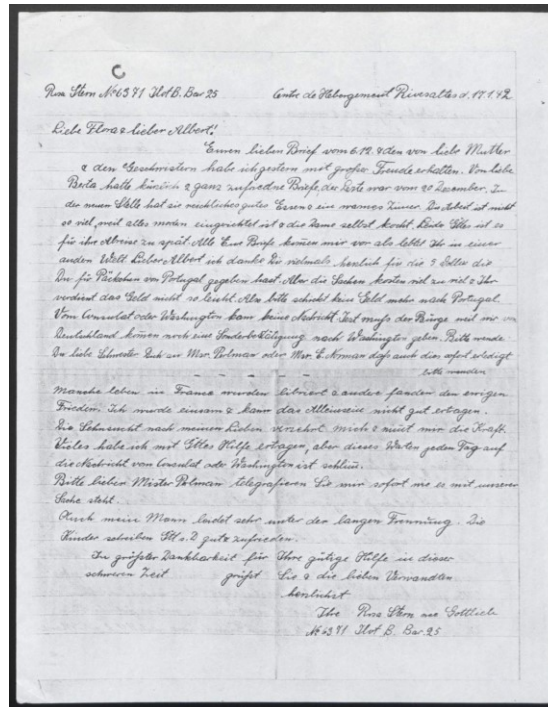 C
Rosa Stern No 6371 Ilot B. Bar 25 Centre de Hebergement Rivesaltes d. 17.1.42
Liebe Flora & lieber Albert!
Euren lieben Brief vom 6.12. & den von liebe Mutter
& den Geschwistern habe ich gestern mit große Freude erhalten. Von liebe
Berta hatte kürzlich 2 ganz zufriedne Briefe, der letzte war vom 20 December. In
der neuen Stelle hat sie reichliches gutes Essen & ein warmes Zimer. Die Arbeit ist nicht
so viel, weil alles modern eingerichtet ist & die Dame selbst kocht. Leider Gttes ist es
für ihre Abreise zu spät. All Eure Briefe komen mir vor als lebtet Ihr in einer
andern Welt. Lieber Albert ich danke Dir vielmals herzlich für die 5 Dollar die
Du für Päckchen von Portugal gegeben hast. Aber die Sachen kosten viel zu viel & Ihr
verdient das Geld nicht so leicht. Also bitte schickt kein Geld mehr nach Portugal.
Vom Consulat oder Washington kam keine Nachricht. Jezt muß der Bürge weil wir von
Deutschland komen noch eine Sonderbestätigung nach Washington geben. Bitte wende
Du liebe Schwester Dich an Msr. Polman oder Msr. E. Norman daß auch dies sofort erledigt
bitte werden
Manche leben in France wurden libriert & andere fanden den ewigen
Frieden. Ich werde einsam & kann das Alleinsein nicht gut ertragen.
Die Sehnsucht nach meinen Lieben verzehrt mich & nimt mir die Kraft.
Vieles habe ich mit Gttes Hilfe ertragen, aber dieses Warten jeden Tag auf
die Nachricht von Consulat oder Washington ist schlim.
Bitte lieber Mister Polman telegrafieren Sie mir sofort wie es mit unserer
Sache steht.
Auch mein Mann leidet sehr unter der langen Trennung. Die
Kinder schreiben Gtt s. D. gut & zufrieden.
In größter Dankbarkeit für Ihre gütige Hilfe in dieser
schweren Zeit grüßt Sie & die lieben Verwandten
herzlichst
Ihre Rosa Stern nee Gottlieb
No 6371 Ilot B. Bar 25